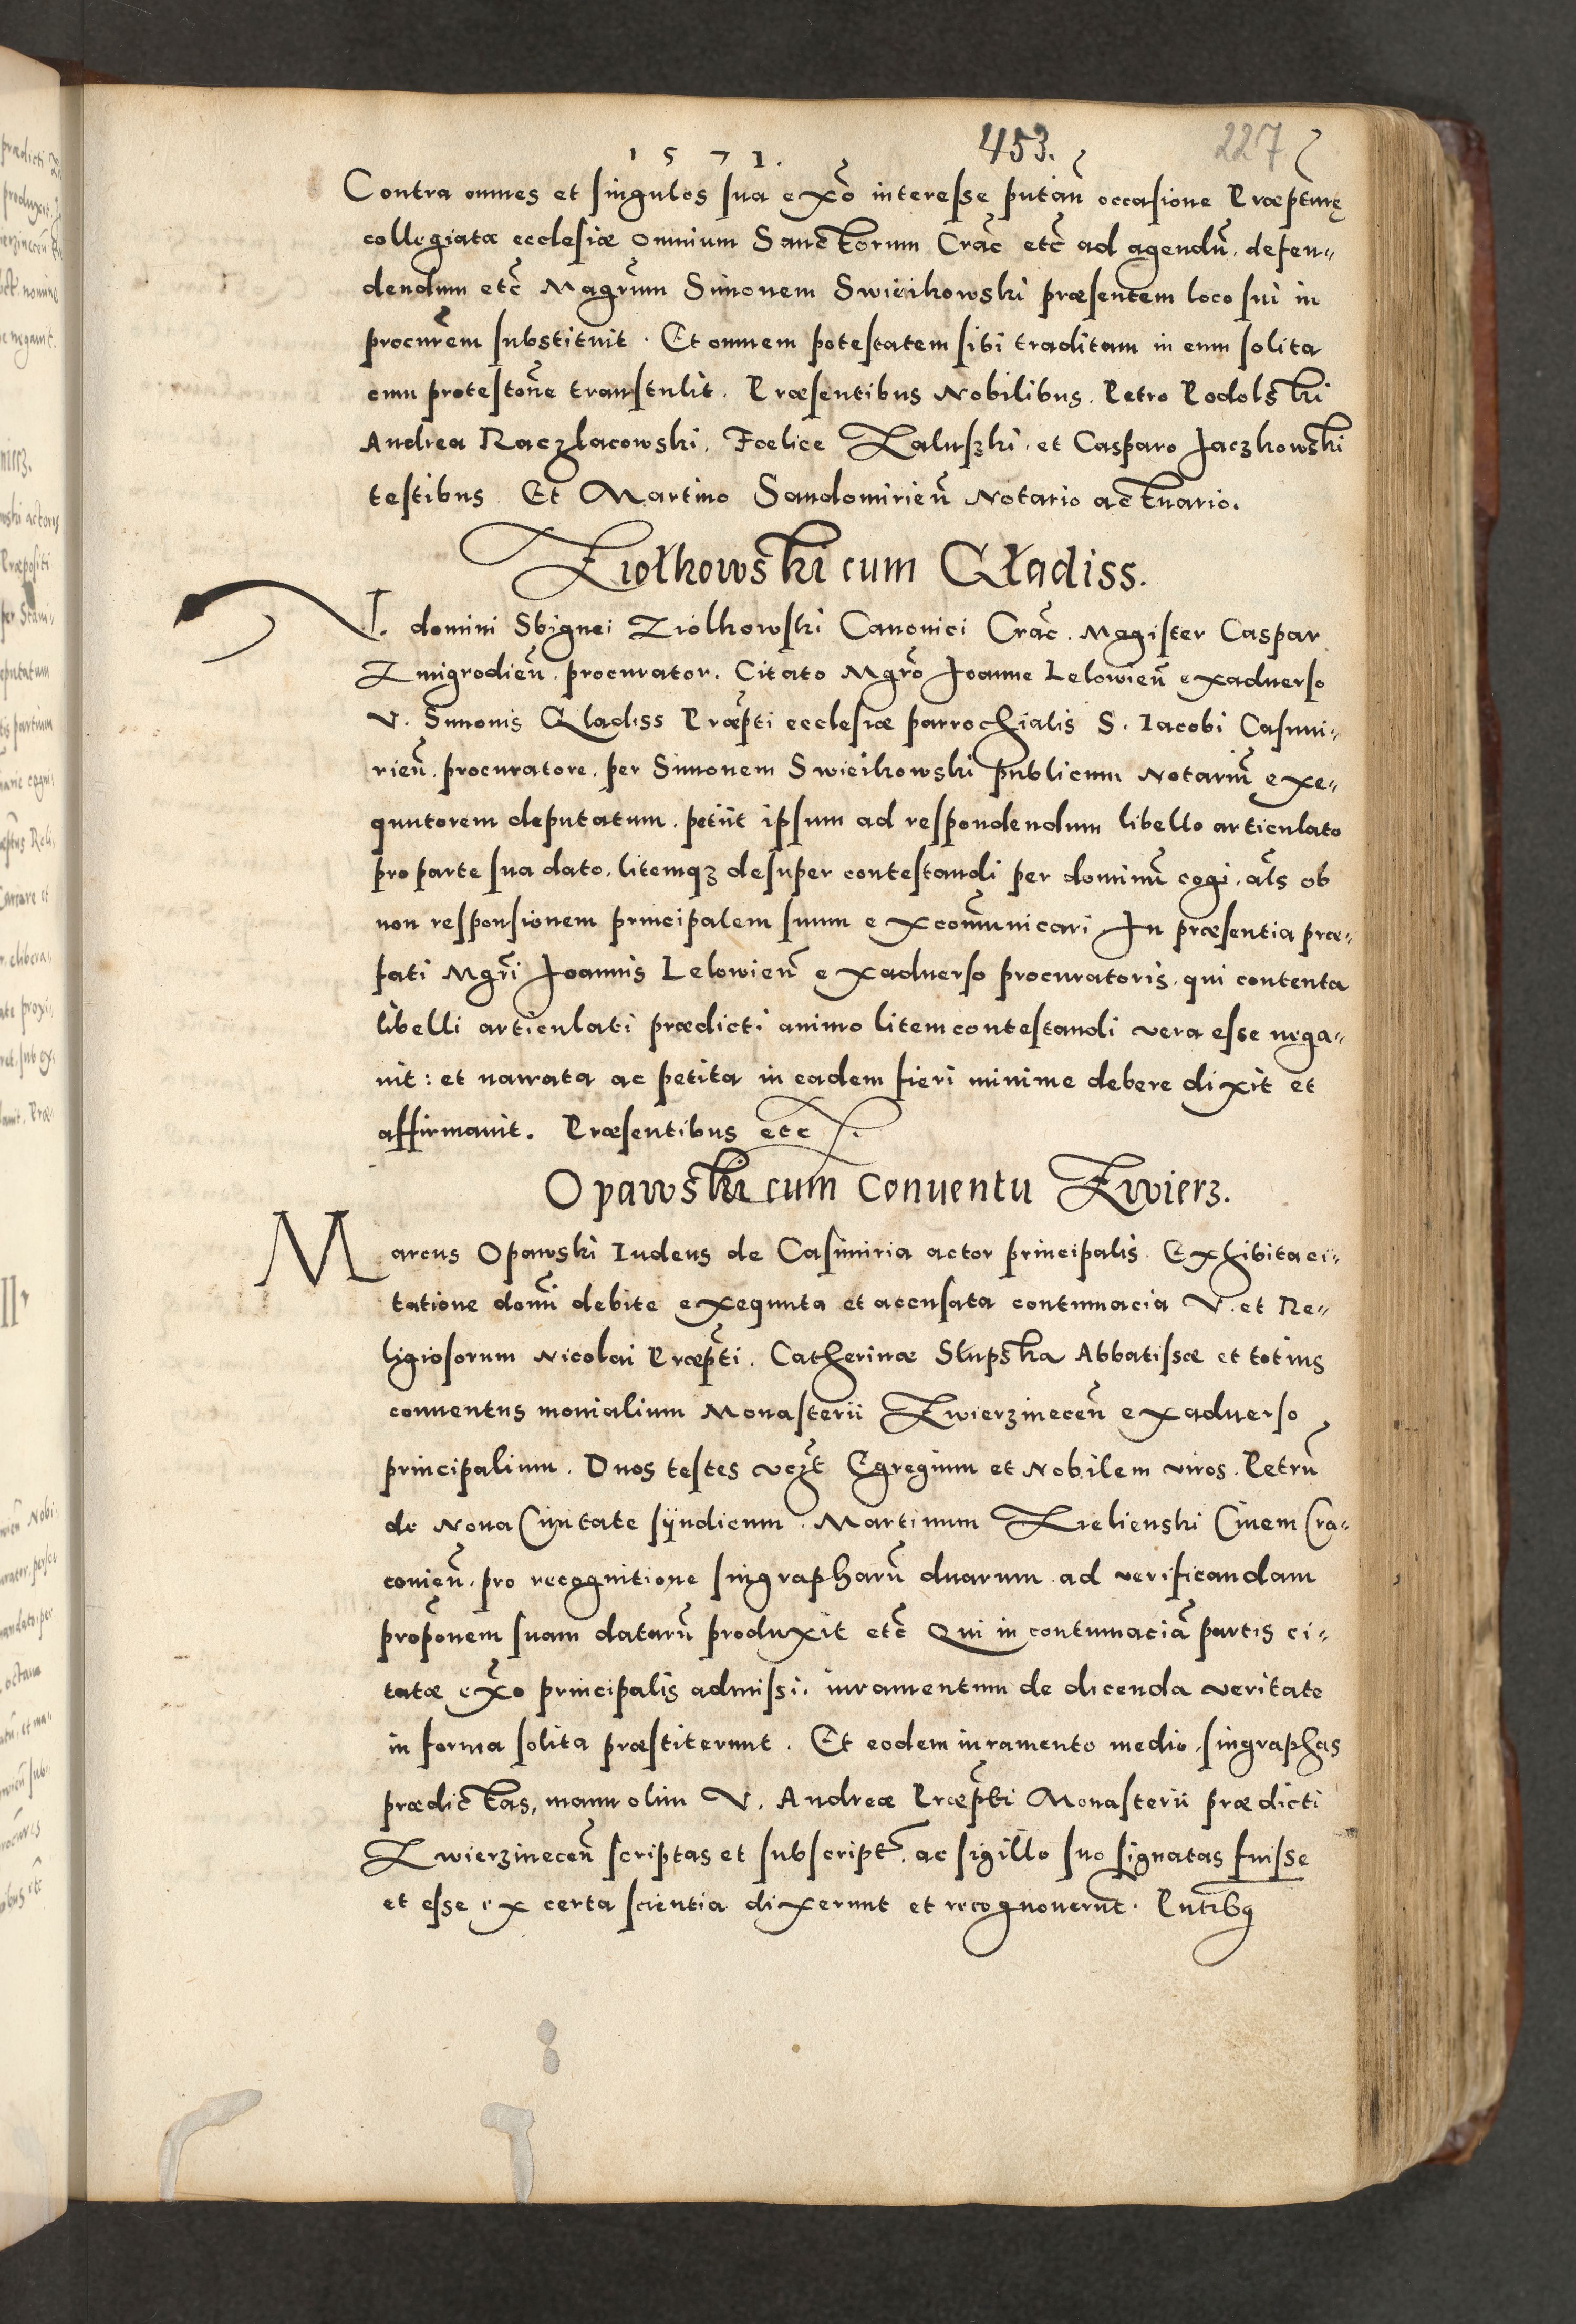 1571.
453.
227
Contra omnes et singulos sua exõ interesse putañ occasione Præpturę
collegiatæ ecclesiæ omnium Sanctorum Crac̃ etc̃ ad agendũ. defen-
dendum etc̃ Magr̃um Simonem Swieikowski præsentem loco sui in
procur̃em substituit. Et omnem potestatem sibi traditam in eum solita
cum protestoñe transtulit. Præsentibus Nobilibus. Petro Podolski
Andrea Raczlacowski. Fœlice Zaluszki. et Casparo Jaczkowski
testibus Et Martino Sandomirieñ Notario actuario.
Ziołkowski cum Gładiss.
V. domini Sbignei Ziolkowski Canonici Crac̃. Magister Caspar
Zmigrodieñ. procurator. Citato Mgrõ Joanne Lelowieñ exaduerso
V. Simonis Gladiss Præpti ecclesiæ parrochialis S. Iacobi Casimi-
rieñ. procuratore. per Simonem Swieikowski publicum Notariũ exe-
quutorem deputatum. petiit ipsum ad respondendum libello articulato
pro parte sua dato. litemqꝫ desuper contestandi per dominũ cogi. als̃ ob
non responsionem principalem suum excom̃unicari In præsentia præ-
fati Mgr̃i Joannis Lelowieñ exaduerso procuratoris. qui contenta
libelli articulati prædicti animo litem contestandi vera esse nega-
uit: et narrata ac petita in eadem fieri minime debere dixit et
affirmauit. Præsentibus etc
Opawski cum Conuentu Zwierz.
Marcus Opawski Iudeus de Casimiria actor principalis. Exhibita ci-
tatione domĩ debite exequuta et accusata contumacia V. et Re-
ligiosorum Nicolai Præpti. Catherinæ Słupska Abbatissæ et totius
conuentus monialium Monasterii Zwierzineceñ exaduerso
principalium. Duos testes vczt̃ Egregium et Nobilem viros. Petrũ
de Noua Ciuitate sÿndicum. Martinum Zielienski Ciuem Cra-
couieñ. pro recognitione singrapharũ duarum ad verificandam
propõnem suam datarũ produxit etc̃ Qui in contumaciã partis ci-
tatæ exõ principalis admissi. iuramentum de dicenda veritate
in forma solita præstiterunt. Et eodem iuramento medio. singraphas
prædictas, manu olim V. Andreæ Præpti Monasterii prædicti
Zwierzineceñ scriptas et subscript̃. ac sigillo suo signatas fuisse
et esse ex certa scientia dixerunt et recognouerũt. Pñtibꝗ